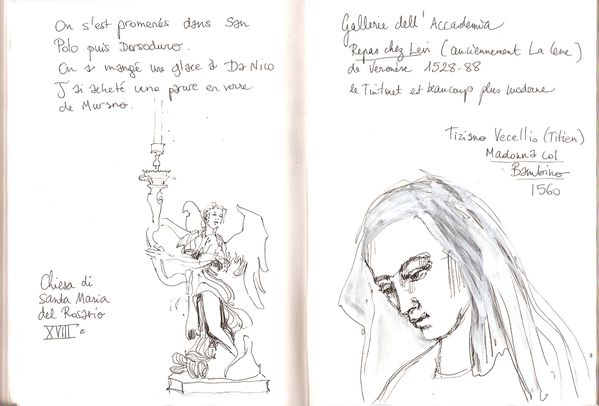 On s'est promenés dans San
Polo puis Dorsoduro.
On a mangé une glace à Da Nico
J'ai acheté une poire en verre
de Murano.
Chiesa di
Santa Maria
del Rosario
XVIII e
Gallerie dell'Accademia
Repas chez Levi (anciennement La Cene)
de Véronèse 1528-88
le Tintoret est beaucoup plus moderne
Tiziano Vecellio (Titien)
Madonna col
Bambino
1560